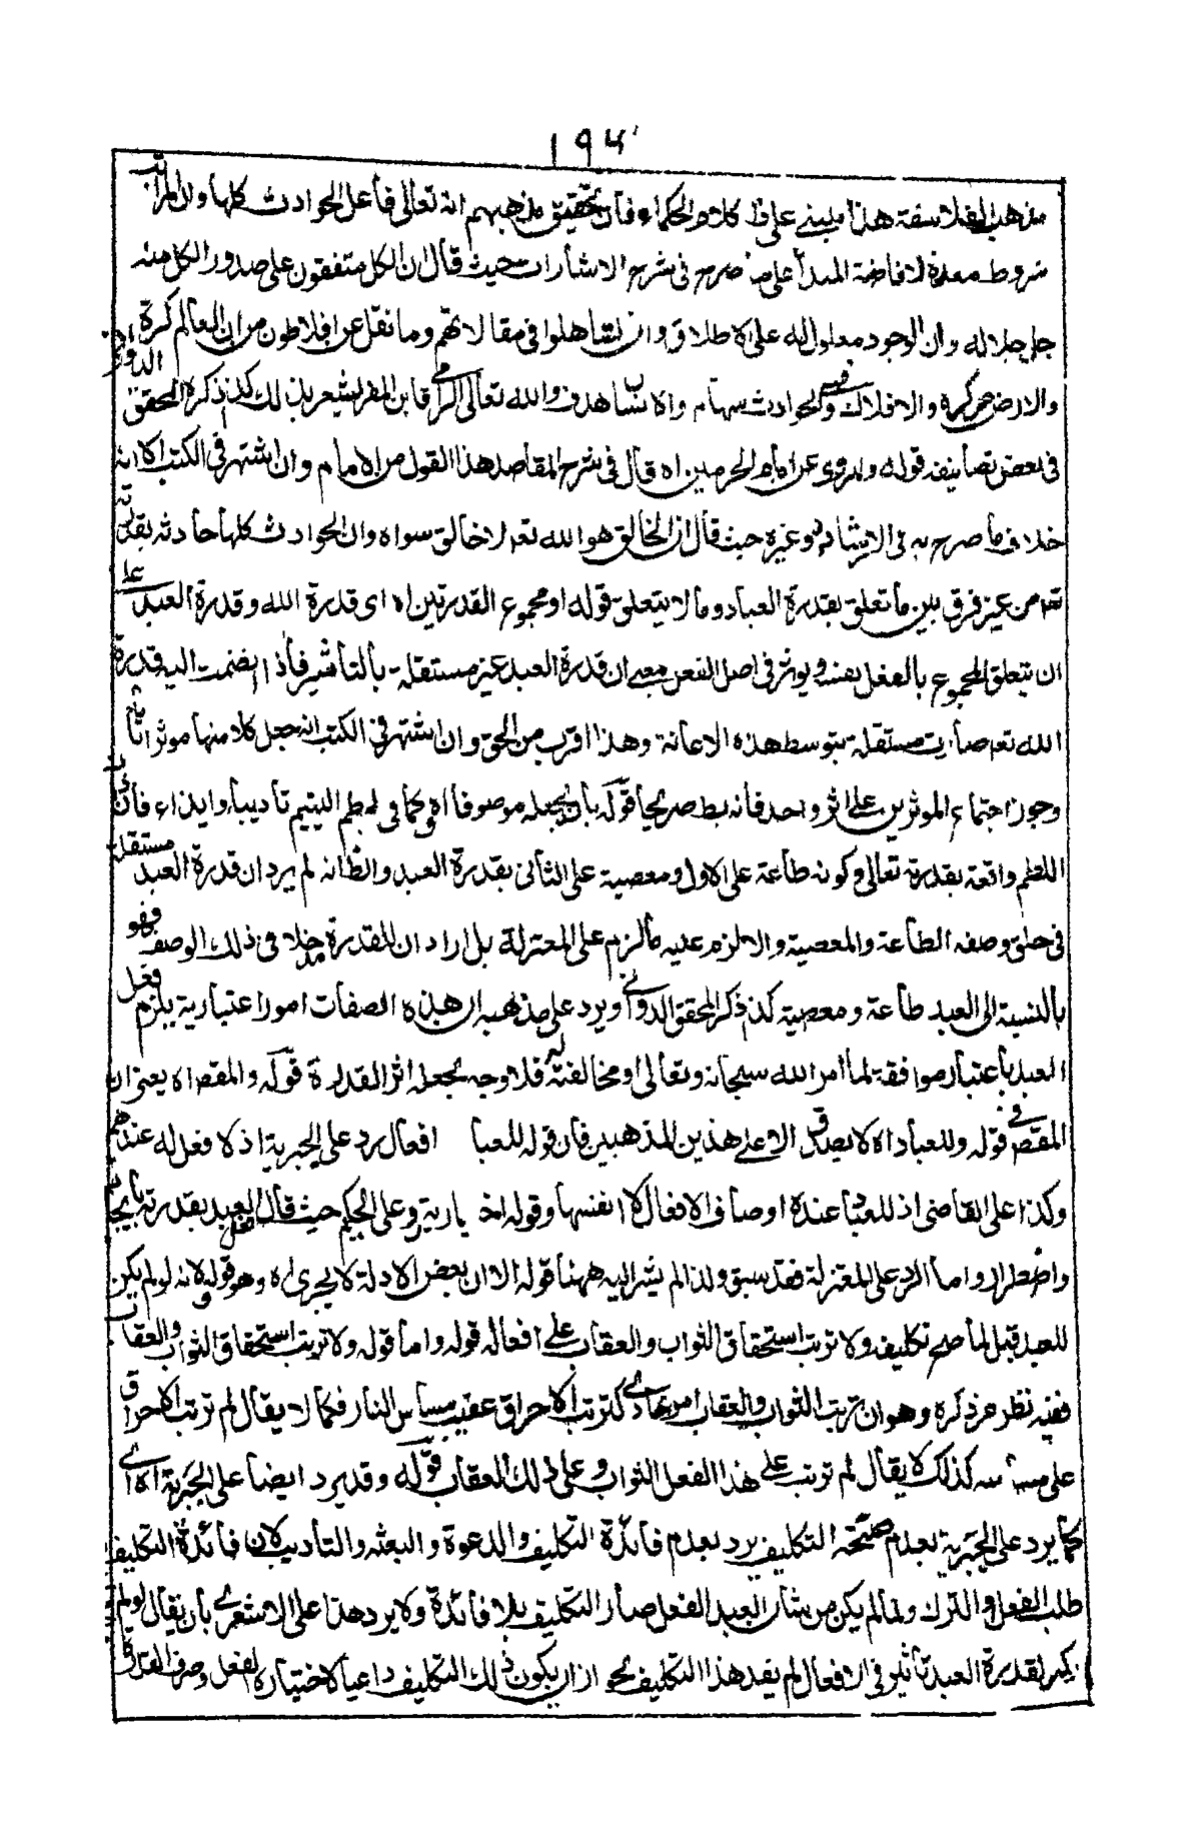 ١٩٥
مذهب الفلاسفة هذا مبني على ظ كلام الحكماء فان تحقيق مذهبهم انه تعالى فاعل الحوادث كلها وان المراتب
شروط معدة لافاضة المبدأ على ما صرح في شرح الاشارات حيث قال ان الكل متفقون على صدور الكل منه
جل جلاله وان الوجود معلول له على الاطلاق وان تساهلوا في مقالاتهم وما نقل عن افلاطون من ان العالم كرة
والارض مركزه والافلاك قسي والحوادث سهام والانسان هدف والله تعالى الرامي فاين المفر يشعر بذلك كذا ذكره المحقق الدواني
في بعض تصانيفه قوله والمروي عن امام الحرمين اه قال في شرح المقاصد هذا القول من الامام وان اشتهر في الكتب الا انه
خلاف ما صرح به في الارشاد وغيره حيث قال ان الخالق هو الله تعالى لا خالق سواه وان الحوادث كلها حادثة بقدرته
تعم من غير فرق بين ما تعلق بقدرة العباد وما لا يتعلق قوله او مجموع القدرتين اه اى قدرة الله وقدرة العبد على
ان تتعلق المجموع بالفعل نفسه ويوثر في اصل الفعل بمعنى ان قدرة العبد غير مستقلة بالتأثير فاذا انضمت اليه قدرة
الله تعم صارت مستقلة بتوسط هذه الاعانة وهذا اقرب من الحق وان اشتهر في الكتب انه جعل كلا منها موثرا تاما
وجوز اجتماع الموثرين على اثر واحد فانه بط صريحا قوله بان يجعله موصوفا اه كما في لطم اليتيم تأديبا وايذاء فان ذات
اللطم واقعة بقدرة تعالى وكونه طاعة على الاول ومعصية على الثانى بقدرة العبد والظ انه لم يرد ان قدرة العبد مستقلة
في خلق وصفه الطاعة والمعصية والا لزم عليه ما لزم على المعتزلة بل اراد ان للقدرة مدخلا في ذلك الوصف فهو
بالنسبة الى العبد طاعة ومعصية كذا ذكر المحقق الدواني ويرد على مذهبه ان هذه الصفات امور اعتبارية يلزم فعل
العبد باعتبار موافقة لما امر الله سبحانه وتعالى او مخالفته له فلا وجه لجعله اثر القدرة قوله والمقص اه يعنى ان
المقص في قوله وللعباد اه لا يصدق الا على هذين المذهبين فان قوله للعبا افعال رد على الجبرية اذ لا فعل له عندهم
وكذا على القاضى اذ للعباد عنده اوصاف الافعال لا انفسها وقوله اختيارية رد على الحكيم حيث قال العبد بقدرته بايجاب
واضطرار واما الرد على المعتزلة فقد سبق ولذا لم يشر اليه ههنا قوله الا ان بعض الادلة لا يجرى اه وهو قوله لانه لو لم يكن
للعبد فعل لما صح تكليفه ولا ترتب استحقاق الثواب والعقاب على افعاله قوله واما قوله ولا ترتب استحقاق الثواب والعقاب
ففيه نظر مر ذكره وهو ان ترتب الثواب والعقاب امر عادى كترتب الاحراق عقيب مساس النار فكما لا يقال لم ترتب الاحراق
على مساسه كذلك لا يقال لم ترتب على هذا الفعل الثواب وعلى ذلك العقاب قوله وقد يرد ايضا على الجبرية اه اى
كما يرد على الجبرية بعدم صحته التكليف يرد بعدم فائدة التكليف والدعوة والبعثه والتأديب لان فائدة التكليف
طلب الفعل والترك ولما لم يكن من شان العبد الفعل صار التكليف بلا فائدة ولا يرد هذا على الاشعرى بان يقال لو لم
يكن لقدرة العبد تأثير في الافعال لم يفد هذا التكليف لجواز ان يكون ذلك التكليف داعيا لاختياره الفعل وصرف القدرة